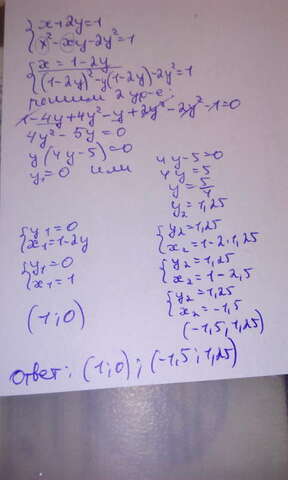 {x+2y=1
x²-xy-2y²=1
{x=1-2y
(1-2y)²-y(1-2y)-2y²=1
решим 2 ур-е:
1-4y+4y²-y+2y²-2y²-1=0
4y²-5y=0
y(4y-5)=0
y₁=0 или
4y-5=0
4y=5
y=5/4
y₂=1,25
{y₁=0
x₁=1-2y
{y₁=0
x₁=1
(1;0)
{y₂=1,25
x₂=1-2·1,25
{y₂=1,25
x₂=1-2,5
{y₂=1,25
x₂=-1,5
(-1,5;1,25)
Ответ: (1;0); (-1,5;1,25)